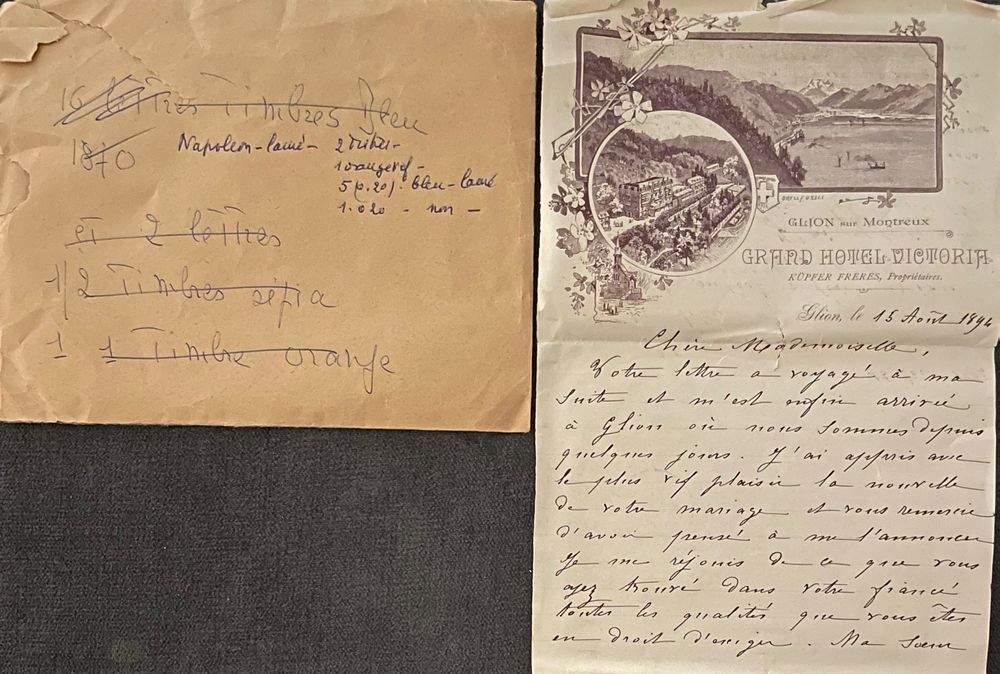 16 lettres Timbres Bleu
1870
Napoleon-lauré- 2
1 orange
5 (c. 20). bleu-lauré
1. 020 - non -
et 2 lettres
1 2 Timbres sepia
1 1 Timbre orange
GLION sur Montreux
GRAND HOTEL VICTORIA
KÜPFER FRÈRES, Propriétaires.
Glion, le 15 Août 1894
Chère Mademoiselle,
Votre lettre a voyagé à ma
suite et m'est enfin arrivée
à Glion où nous sommes depuis
quelques jours. J'ai appris avec
le plus vif plaisir la nouvelle
de votre mariage et vous remercie
d'avoir pensé à me l'annoncer
Je me réjouis de ce que vous
ayez trouvé dans votre fiancé
toutes les qualités que vous êtes
en droit d'exiger. Ma Sœur